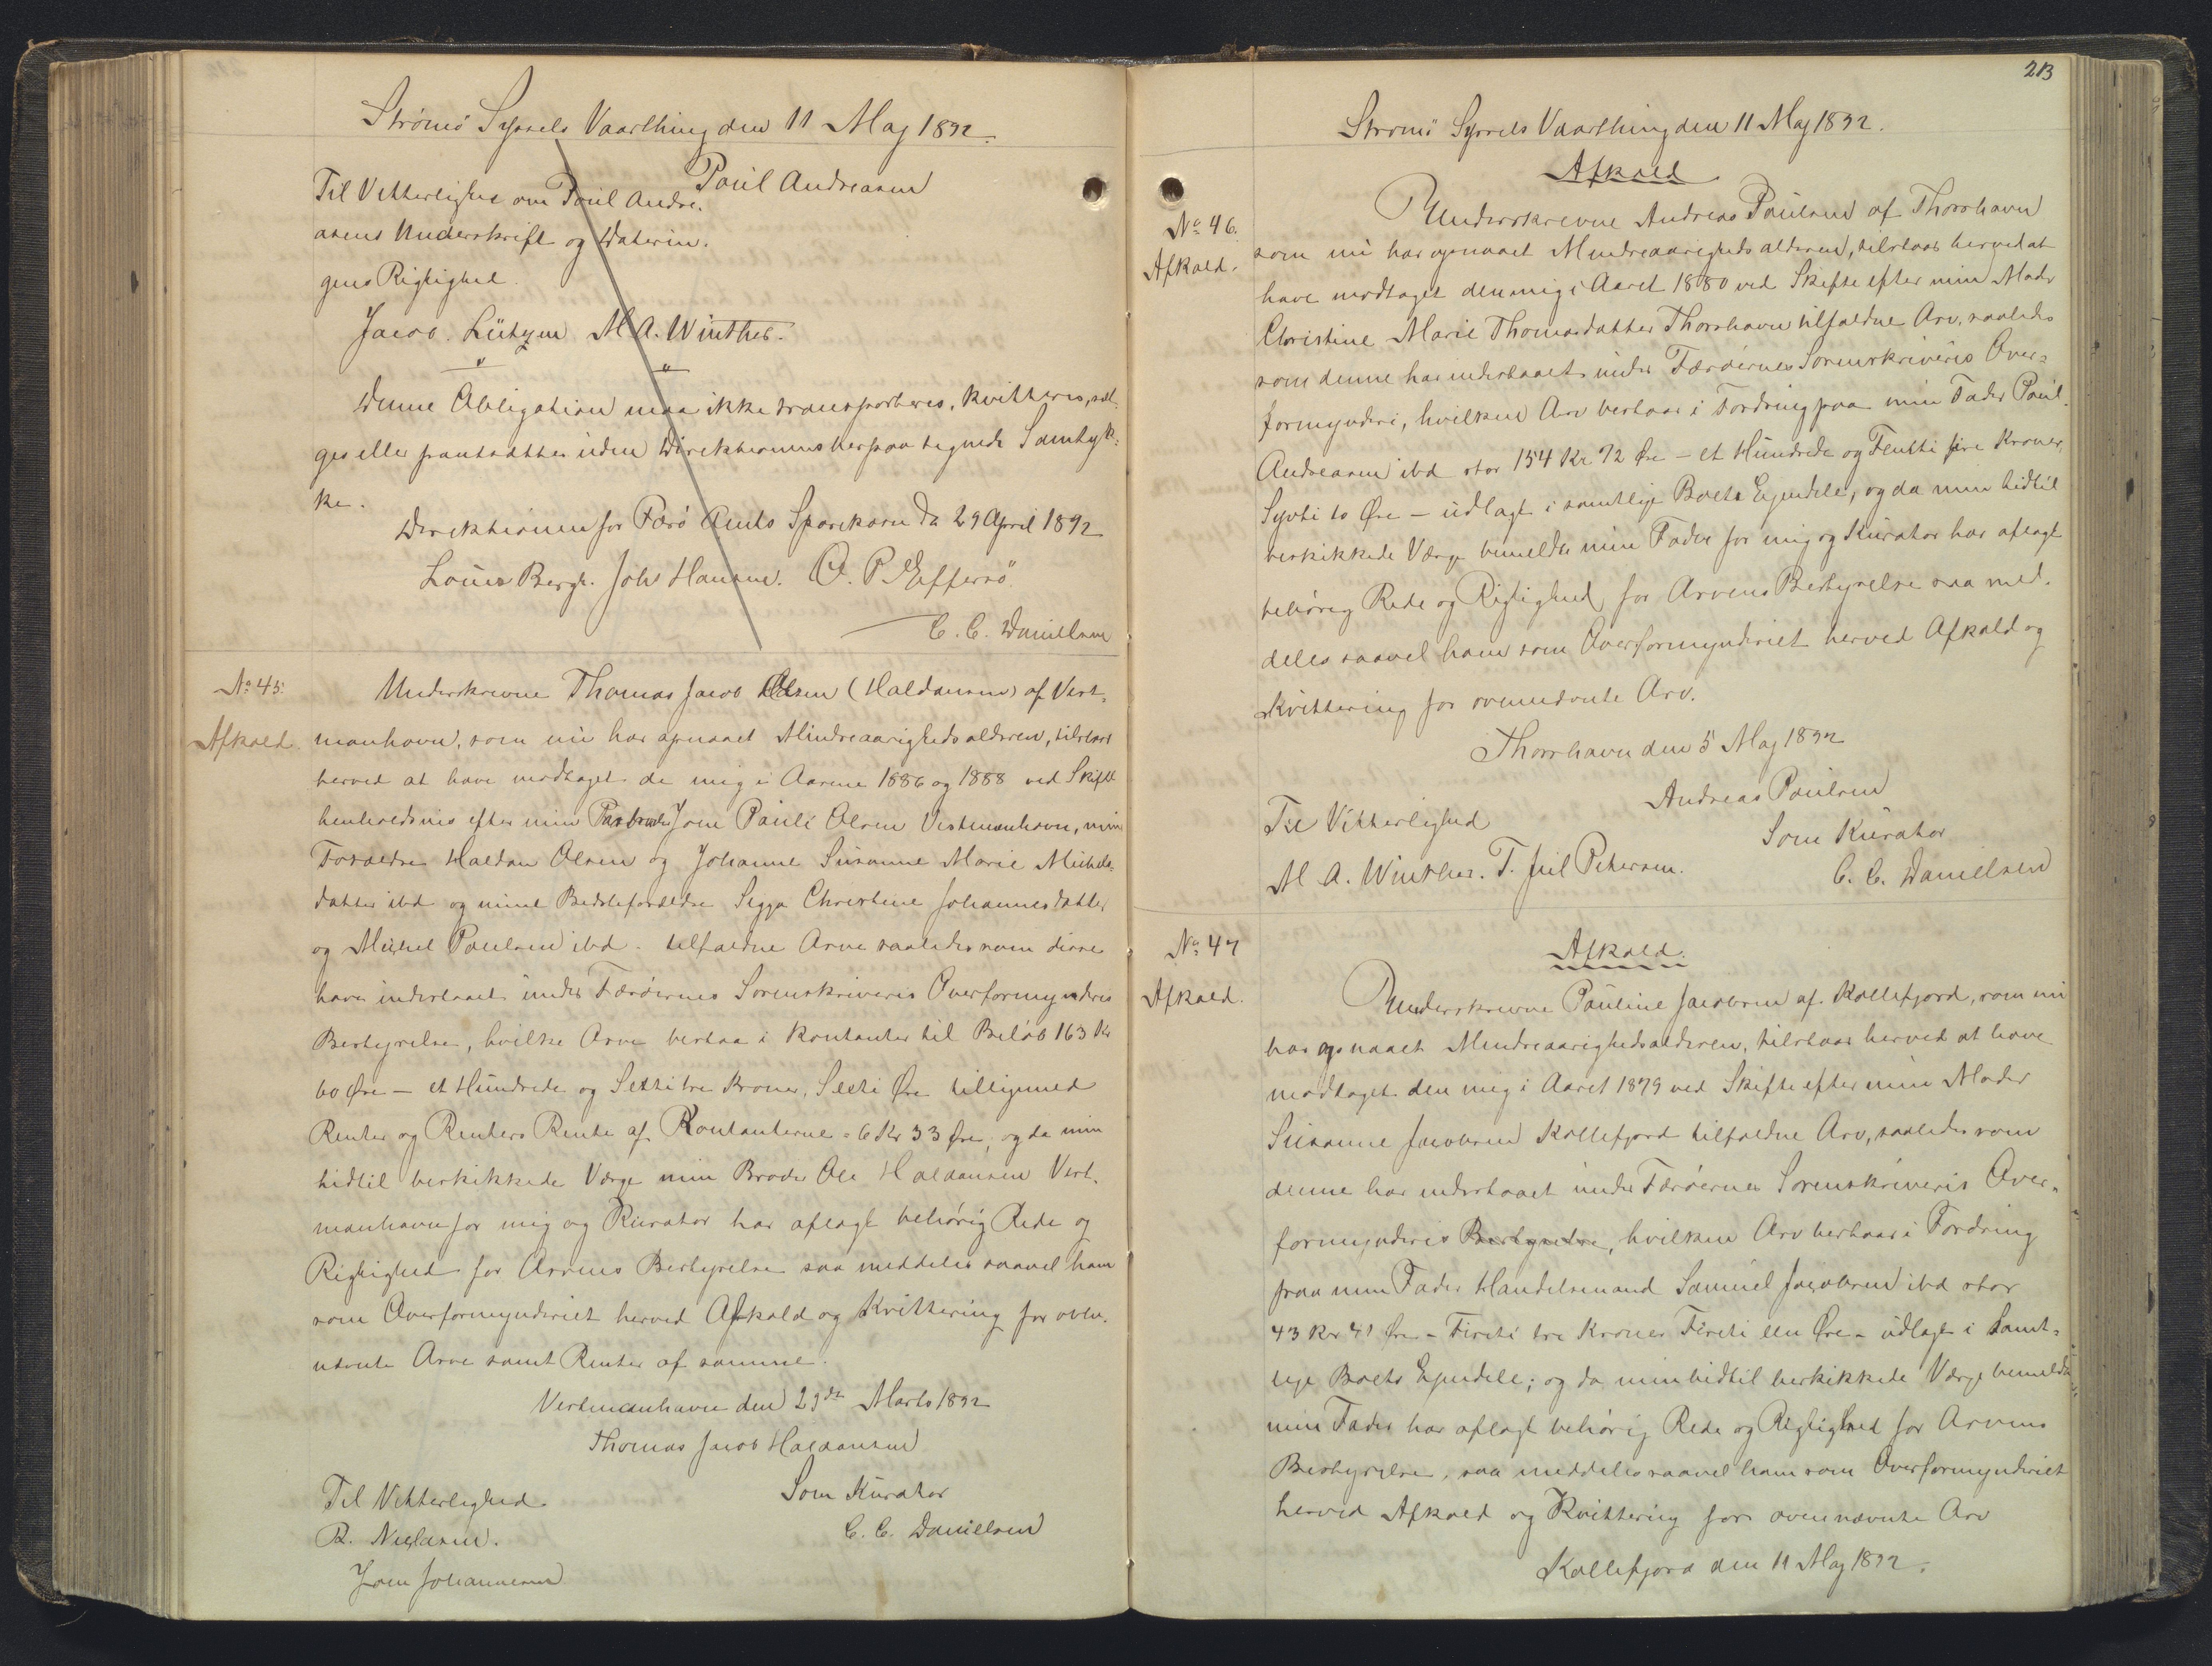 Strømø Syssels Vaarthing den 11 Maj 1892.
Poul Andreasen
Til Vitterlighed om Poul Andre-
asens Underskrift og Daterin-
gens Rigtighed.
Jacob Lützen M. A. Winther.
Denne Obligation maa ikke transporteres, kvitteres, sæl-
ges eller pantsættes uden Direktionens herpaa tegnede Samtyk-
ke.
Direktionen for Færø Amts Sparekasse d. 29 April 1892
Louis Bergh. Joh Hansen. O. P. Effersø
C. C. Danielsen
No 45.
Afkald.
Underskrevne Thomas Jacob Olsen (Haldansen) af Vest-
manhavn, som nu har opnaaet Mindreaarighedsalderen, tilstaar
herved at have modtaget de mig i Aarene 1886 og 1888 ved Skifte
henholdsvis efter min Farbroder Joen Pauli Olsen Vestmanhavn, mine
Forældre Haldan Olsen og Johanne Susanne Marie Michels-
datter ibd og mine Bedsteforældre Sigga Christine Johannesdatter
og Michel Poulsen ibd. tilfaldne Arve saaledes som disse
have indestaaet under Færøernes Sorenskriveris Overformynderis
Bestyrelse, hvilke Arve bestaa i Kontanter til Beløb 163 Kr
60 Øre - et Hundrede og Sexti tre Kroner, Sexti Øre tilligemed
Renter og Renters Rente af Kontanterne = 6 Kr 33 Øre, og da min
hidtil beskikkede Værge min Broder Ole Haldansen Vest-
manhavn for mig og Kurator har aflagt behørig Rede og
Rigtighed for Arvens Bestyrelse saa meddeles saavel ham
som Overformynderiet herved Afkald og Kvittering for oven-
nævnte Arve samt Renter af samme.
Vestmanhavn den 29de Marts 1892
Thomas Jacob Haldansen
Til Vitterlighed
Som Kurator
R. Nielsen.
C. C. Danielsen
Joen Johannesen
213
Strømø Syssels Vaarthing den 11 Maj 1892.
Afkald
No 46.
Afkald.
Underskrevne Andreas Poulsen af Thorshavn
som nu har opnaaet Mindreaarighedsalderen, tilstaar herved at
have modtaget den mig i Aaret 1880 ved Skifte efter min Moder
Christine Marie Thomasdatter Thorshavn tilfaldne Arv, saaledes
som denne har indestaaet under Færøernes Sorenskriveris Over-
formynderi, hvilken Arv bestaar i Fordring paa min Fader Poul
Andreasen ibd stor 154 Kr 72 Øre - et Hundrede og Femti fire Kroner,
Syvti to Øre - udlagt i samtlige Boets Ejendele, og da min hidtil
beskikkede Værge bemeldte min Fader for mig og Kurator har aflagt
behørig Rede og Rigtighed for Arvens Bestyrelse saa med-
deles saavel ham som Overformynderiet herved Afkald og
Kvittering for ovennævnte Arv.
Thorshavn den 5 Maj 1892
Andreas Poulsen
Til Vitterlighed
Som Kurator
M. A. Winther. T. Juil Petersen.
C. C. Danielsen
Afkald.
No 47
Afkald.
Underskrevne Pouline Jacobsen af Kollefjord, som nu
har opnaaet Mindreaarighedsalderen, tilstaar herved at have
modtaget den mig i Aaret 1879 ved Skifte efter min Moder
Susanne Jacobsen Kollefjord tilfaldne Arv, saaledes som
denne har indestaaet under Færøernes Sorenskriveris Over-
formynderis Bestyrelse, hvilken Arv bestaar i Fordring
paa min Fader Handelsmand Samuel Jacobsen ibd stor
43 Kr 41 Øre - Fireti tre Kroner Fireti een Øre - udlagt i Samt-
lige Boets Ejendele; og da min hidtil beskikkede Værge bemeldte
min Fader har aflagt behørig Rede og Rigtighed for Arvens
Bestyrelse, saa meddeles saavel ham som Overformynderiet
herved Afkald og Kvittering for ovennævnte Arv
Kollefjord den 11 Maj 1892.